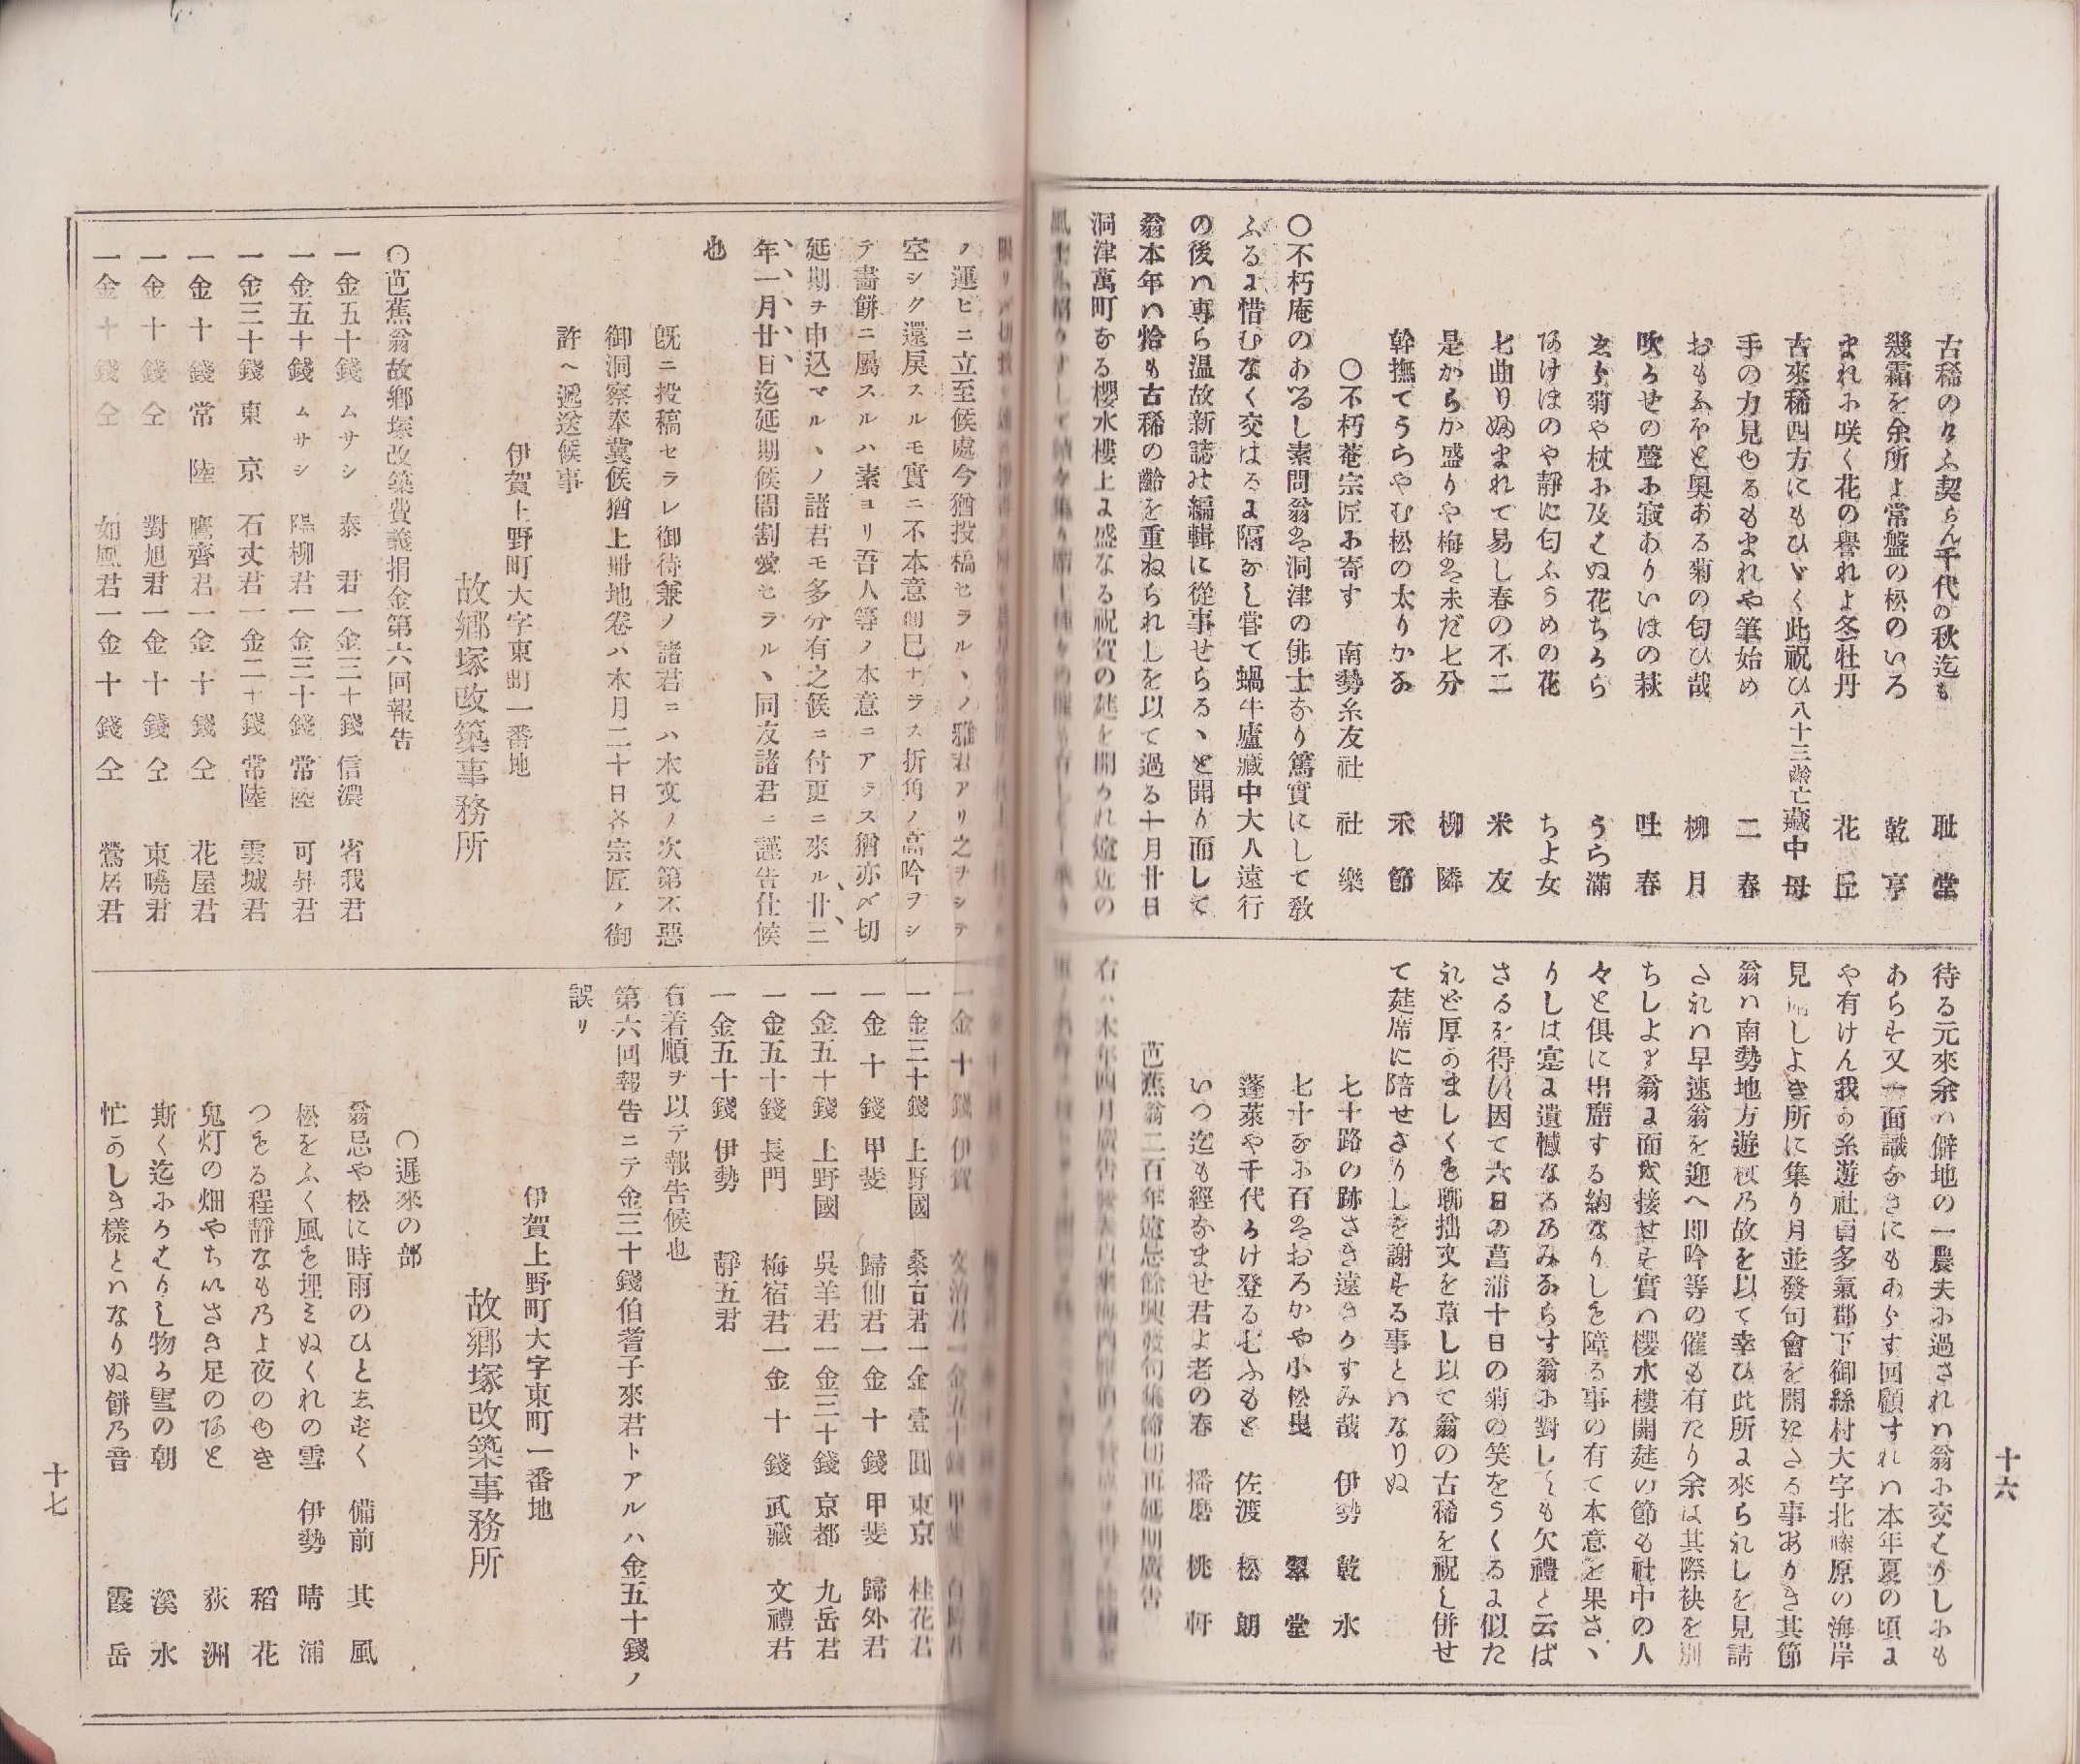 十六
古稀のけふ契らん千代の秋迄も 耻堂
幾霜を余所よ常盤の松のいろ 乾亨
まれに咲く花の譽れよ冬牡丹 花丘
古來稀四方にもひゞく此祝ひ 八十三齡亡藏中母
手の力見ゆるもまれや筆始め 二春
おもふやと奧ある菊の匂ひ哉 柳月
吹かせの聲に寂ありいはの萩 吐春
しら菊や杖に及はぬ花ちから うら滿
あけほのや靜に匂ふうめの花 ちよ女
七曲りぬまれて易し春の不二 米友
是からか盛りや梅は未だ七分 柳隣
幹撫てうらやむ松の太りかな 禾節
〇不朽菴宗匠に寄す 南勢糸友社 社樂
〇不朽庵のあつるし素問翁は洞津の俳士なり篤實にして敎
ふるに惜むなく交はるに隔なし甞て蝸牛廬藏中大人遠行
の後ハ專ら温故新誌の編輯に從事せらるゝと聞り而して
翁本年ハ恰も古稀の齡を重ねられしを以て過る十月廿日
洞津萬町なる櫻水樓上に盛なる祝賀の莚を開かれ遠近の
待る元來余ハ僻地の一農夫に過されハ翁に交はりしにも
あらす又一面識なきにもあらす回顧すれハ本年夏の頃に
や有けん我か糸遊社員多氣郡下御絲村大字北藤原の海岸
見晴しよき所に集り月並發句會を開きたる事ありき其節
翁ハ南勢地方遊杖乃故を以て幸ひ此所に來られしを見請
されハ早速翁を迎へ即吟等の催も有たり余は其際袂を別
ちしより翁に面を接せす實ハ櫻水樓開莚の節も社中の人
々と俱に出席する納なりしを障る事の有て本意を果さゝ
りしは寔に遺憾なるのみならす翁に對しても欠禮と云ば
さるを得す因て六日の菖浦十日の菊の笑をうくるに似た
れど厚かましくも聊拙文を草し以て翁の古稀を祝し併せ
て莚席に陪せさりしを謝する事とハなりぬ
七十路の跡さき遠きかすみ哉 伊勢 乾水
七十なに百はおろかや小松曳 翠堂
蓬萊や千代かけ登る七ふもと 佐渡 松朗
いつ迄も經なませ君よ老の春 播磨 桃軒
芭蕉翁二百年遠忌餘興發句集締切再延期廣告
ノ運ヒニ立至候處今猶投稿セラルヽノ雅君アリ之ヲシテ
空シク還戾スルモ實ニ不本意而已ナラス折角ノ高吟ヲシ
テ畵餅ニ屬スルハ素ヨリ吾人等ノ本意ニアラス猶亦〆切
延期ヲ申込マルヽノ諸君モ多分有之候ニ付更ニ來ル廿二
年一月廿日迄延期候間割愛セラルヽ同友諸君ニ謹告仕候
也
既ニ投稿セラレ御待兼ノ諸君ニハ本文ノ次第不惡
御洞察奉冀候猶上册地卷ハ本月二十日各宗匠ノ御
許へ遞送候事
伊賀上野町大字東町一番地
故鄕塚改築事務所
〇芭蕉翁故鄕塚改築費義捐金第六回報告
一金五十錢 ムサシ 泰君 一金三十錢 信濃 省我君
一金五十錢 ムサシ 陽柳君 一金三十錢 常陸 可昇君
一金三十錢 東京 石丈君 一金二十錢 常陸 雲城君
一金十錢 常陸 鷹齊君 一金十錢 仝 花屋君
一金十錢 仝 對旭君 一金十錢 仝 東曉君
一金十錢 仝 如風君 一金十錢 仝 鶯居君
一金十錢 伊賀 文治君
一金三十錢 上野國 桑古君 一金壹圓 東京 桂花君
一金十錢 甲斐 歸仙君 一金十錢 甲斐 歸外君
一金五十錢 上野國 吳羊君 一金三十錢 京都 九岳君
一金五十錢 長門 梅宿君 一金十錢 武藏 文禮君
一金五十錢 伊勢 靜五君
右着順ヲ以テ報告候也
第六回報告ニテ金三十錢伯耆子來君トアルハ金五十錢ノ
誤リ
伊賀上野町大字東町一番地
故鄕塚改築事務所
〇遲來の部
翁忌や松に時雨のひとしずく 備前 其風
松をふく風を埋みぬくれの雪 伊勢 晴浦
つもる程靜なもの よ夜のゆき 稻花
鬼灯の畑やちいさき足のあと 荻洲
斯く迄にかはりし物か雪の朝 溪水
忙かしき樣とハなりぬ餅乃音 霞岳
十七